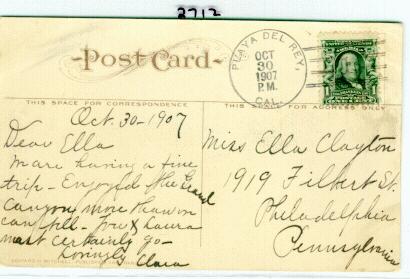 3713
Post Card
PLAYA DEL REY,
OCT
30
1907
P.M.
CAL.
THIS SPACE FOR CORRESPONDENCE
THIS SPACE FOR ADDRESS ONLY
Oct. 30 - 1907
Dear Ella
We are having a fine
trip - Enjoyed the Grand
Canyon more than we
can tell - You & Laura
must certainly go -
Lovingly
Clara
Miss Ella Clayton
1919 Filbert St.
Philadelphia
Pennsylvania
EDWARD H. MITCHELL, PUBLISHER